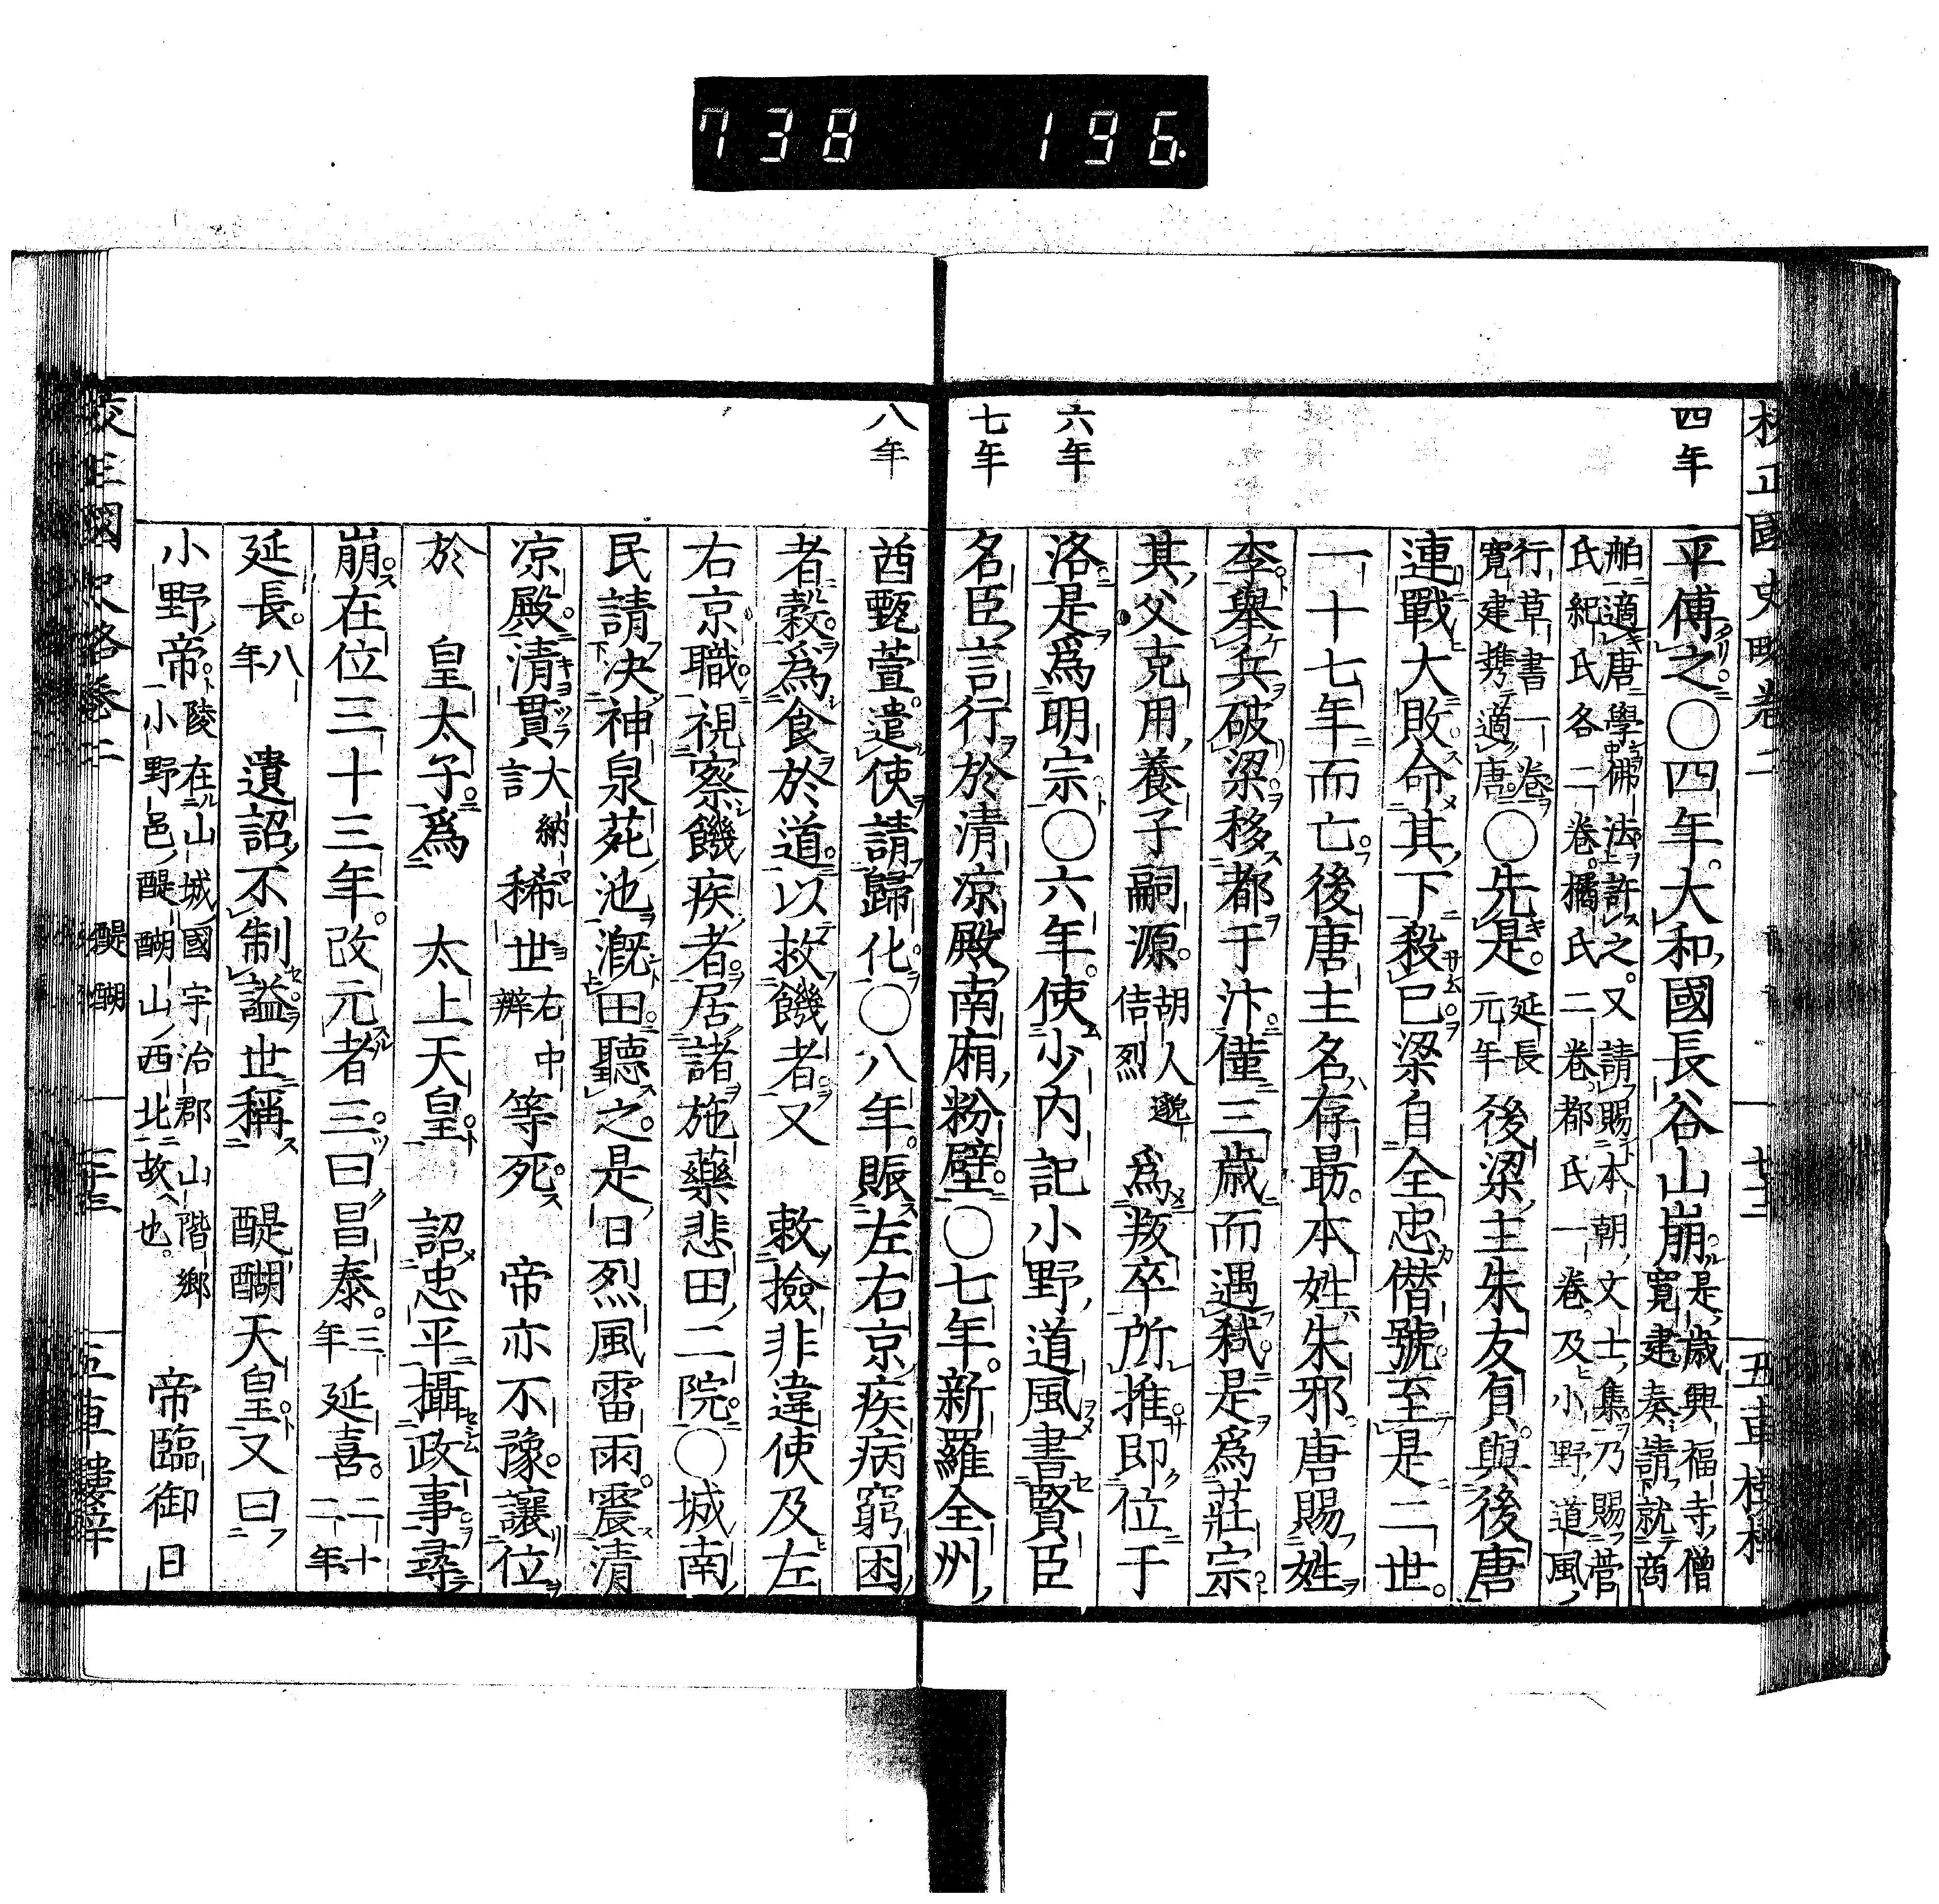 738 196
校正國史略卷二
四年
平傅之○四年大和國長谷山崩是歲興福寺僧寬建奏請就商
舶適唐學佛法許之又請賜本朝文士集乃賜菅氏紀氏各二卷橘氏二卷都氏一卷及小野道風
行草書一卷寬建携適唐○先是延長元年後梁主朱友貞與後唐
連戰大敗命其下殺已梁自全忠僭號至是二世
一十七年而亡後唐主名存勗本姓朱邪唐賜姓
李舉兵破梁移都于汴僅三歲而遇弑是爲莊宗
其父克用養子嗣源胡人邈佶烈爲叛卒所推即位于
六年
洛是爲明宗○六年使少內記小野道風書賢臣
七年
名臣言行於清凉殿南廂粉壁○七年新羅全州
八年
酋甄萱遣使請歸化○八年賑左右京疾病窮困
者穀爲食於道以救饑者又敕撿非違使及左
右京職視察饑疾者居諸施藥悲田二院○城南
民請决神泉苑池漑田聽之是日烈風雷雨震清
凉殿清貫大納言稀世右中辨等死帝亦不豫讓位
於皇太子爲太上天皇詔忠平攝政事尋
崩在位三十三年改元者三曰昌泰三年延喜二十二年
延長八年遺詔不制謚世稱醍醐天皇又曰
小野帝陵在山城國宇治郡山階鄉小野邑醍醐山西北故也帝臨御日
醍醐